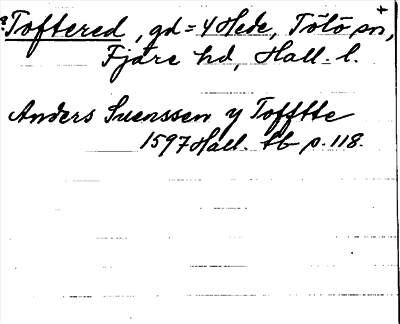 ? Toftered, gd = 4 Hede, Tölö sn, +
Fjäre hd, Hall. l.
Anders Suenssen y Tofftte
1597 Hall. tb p. 118.